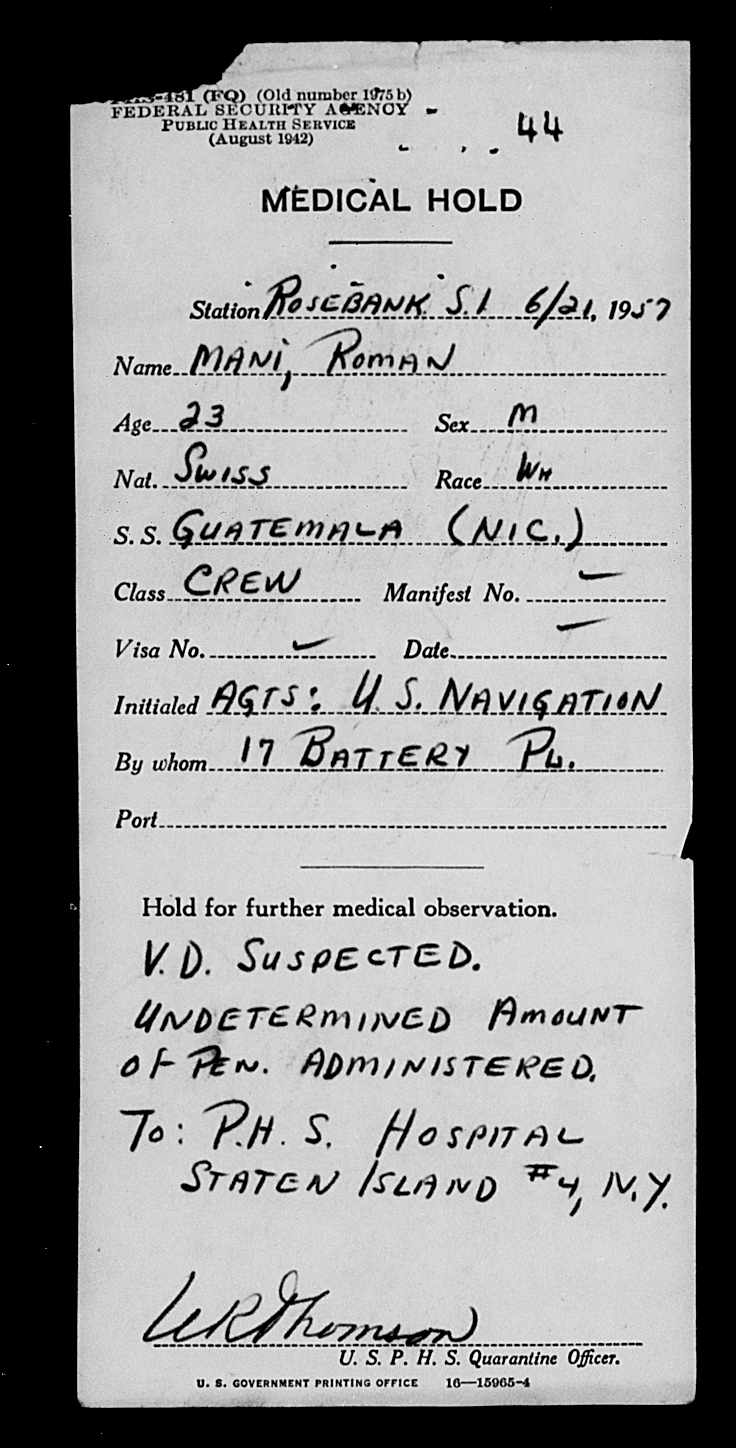 -481 (FQ) (Old number 1975 b)
FEDERAL SECURITY AGENCY
PUBLIC HEALTH SERVICE
(August 1942)
44
MEDICAL HOLD
Station ROSEBANK S.I 6/21, 1957
Name MANI, ROMAN
Age 23 Sex M
Nat. SWISS Race WH
S. S. GUATEMALA (NIC.)
Class CREW Manifest No. –
Visa No. – Date –
Initialed AGTS: U.S. NAVIGATION
By whom 17 BATTERY PL.
Port
Hold for further medical observation.
V.D. SUSPECTED.
UNDETERMINED AMOUNT
OF PEN. ADMINISTERED.
TO: P.H.S. HOSPITAL
STATEN ISLAND #4, N.Y.
WR Thomson
U. S. P. H. S. Quarantine Officer.
U. S. GOVERNMENT PRINTING OFFICE 16—15965-4